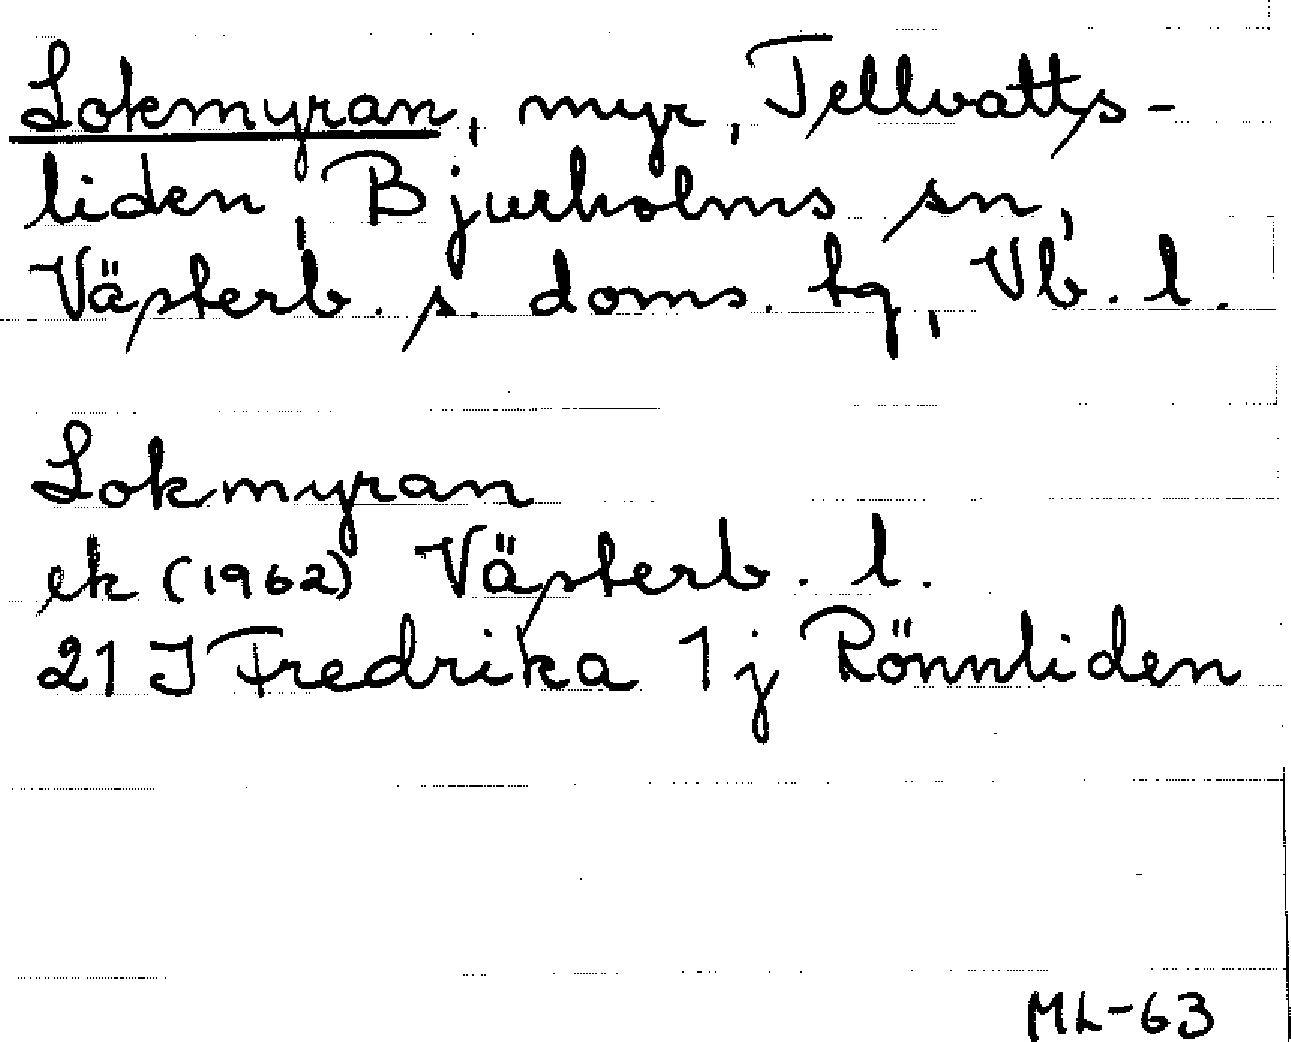 Lokmyran, myr, Tellvatts-
liden, Bjurholms sn,
Västerb. s. doms. tg, Vb. l.
Lokmyran
ek (1962) Västerb. l.
21 J Fredrika 1 j Rönnliden
ML-63